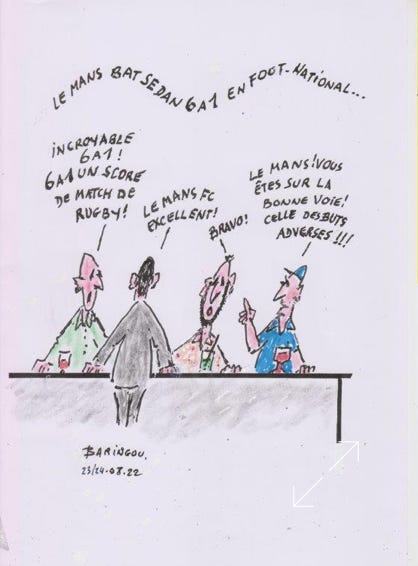 LE MANS BAT SEDAN 6A1 EN FOOT-NATIONAL...
INCROYABLE
6A1!
6A1 UN SCORE
DE MATCH DE
RUGBY!
LE MANS FC
EXCELLENT!
BRAVO!
LE MANS! VOUS
ÊTES SUR LA
BONNE VOIE!
CELLE DES BUTS
ADVERSES!!!
BARINGOU
23/24-08.22